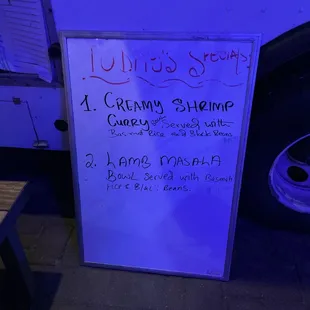 TODAY'S SPECIALS
1. CREAMY SHRIMP
CURRY Served with
Rice and Black Beans
2. LAMB MASALA
BOWL Served with
Rice & Beans